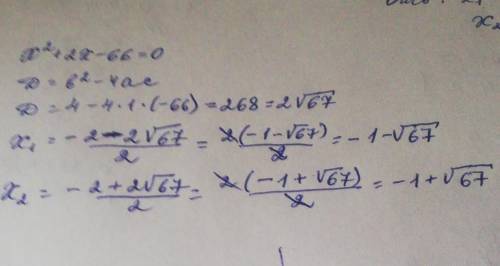 x₂
x²+2x-66=0
D=b²-4ac
D=4-4·1·(-66)=268=2√67
x₁=-2-2√67/2=2(-1-√67)/2=-1-√67
x₂=-2+2√67/2=2(-1+√67)/2=-1+√67